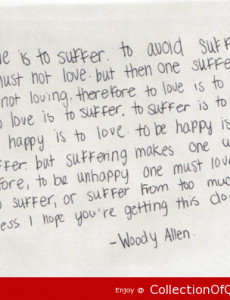 e is to suffer. to avoid suff
must not love. but then one suffe
not loving. therefore to love is to
o love is to suffer. to suffer is to
happy is to love. to be happy is
ffer. but suffering makes one u
fore, to be unhappy one must love
o suffer, or suffer from too muc
ess. I hope you're getting this do
-Woody Allen.
Enjoy @ CollectionOfQ